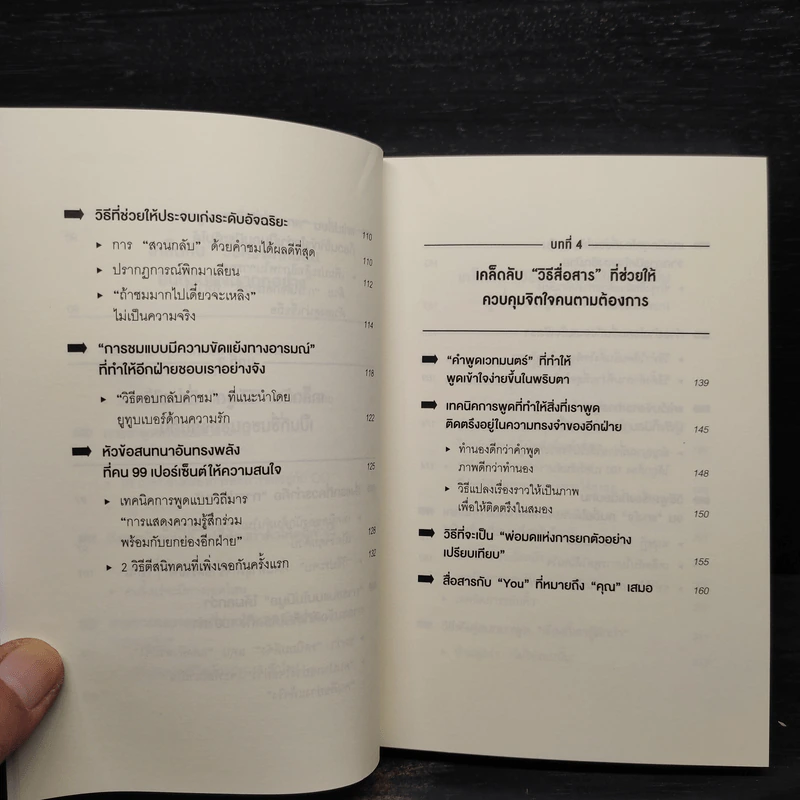 วิธีที่ช่วยให้ประจบเก่งระดับอัจฉริยะ 110
▸ การ “สวนกลับ” ด้วยคำชมได้ผลดีที่สุด 110
▸ ปรากฏการณ์พิกมาเลียน 112
▸ “ถ้าชมมากไปเดี๋ยวจะเหลิง”
ไม่เป็นความจริง 114
“การชมแบบมีความขัดแย้งทางอารมณ์”
ที่ทำให้อีกฝ่ายชอบเราอย่างจัง 118
▸ “วิธีตอบกลับคำชม” ที่แนะนำโดย
ยูทูบเบอร์ด้านความรัก 122
หัวข้อสนทนาอันทรงพลัง
ที่คน 99 เปอร์เซ็นต์ให้ความสนใจ 125
▸ เทคนิคการพูดแบบวิถีมาร
“การแสดงความรู้สึกร่วม
พร้อมกับยกย่องอีกฝ่าย” 128
▸ 2 วิธีตีสนิทคนที่เพิ่งเจอกันครั้งแรก 132
บทที่ 4
เคล็ดลับ “วิธีสื่อสาร” ที่ช่วยให้
ควบคุมจิตใจคนตามต้องการ
“คำพูดเวทมนตร์” ที่ทำให้
พูดเข้าใจง่ายขึ้นในพริบตา 139
เทคนิคการพูดที่ทำให้สิ่งที่เราพูด
ติดตรึงอยู่ในความทรงจำของอีกฝ่าย 145
▸ ทำนองดีกว่าคำพูด
ภาพดีกว่าทำนอง 148
▸ วิธีแปลงเรื่องราวให้เป็นภาพ
เพื่อให้ติดตรึงในสมอง 150
วิธีที่จะเป็น “พ่อมดแห่งการยกตัวอย่าง
เปรียบเทียบ” 155
สื่อสารกับ “You” ที่หมายถึง “คุณ” เสมอ 160